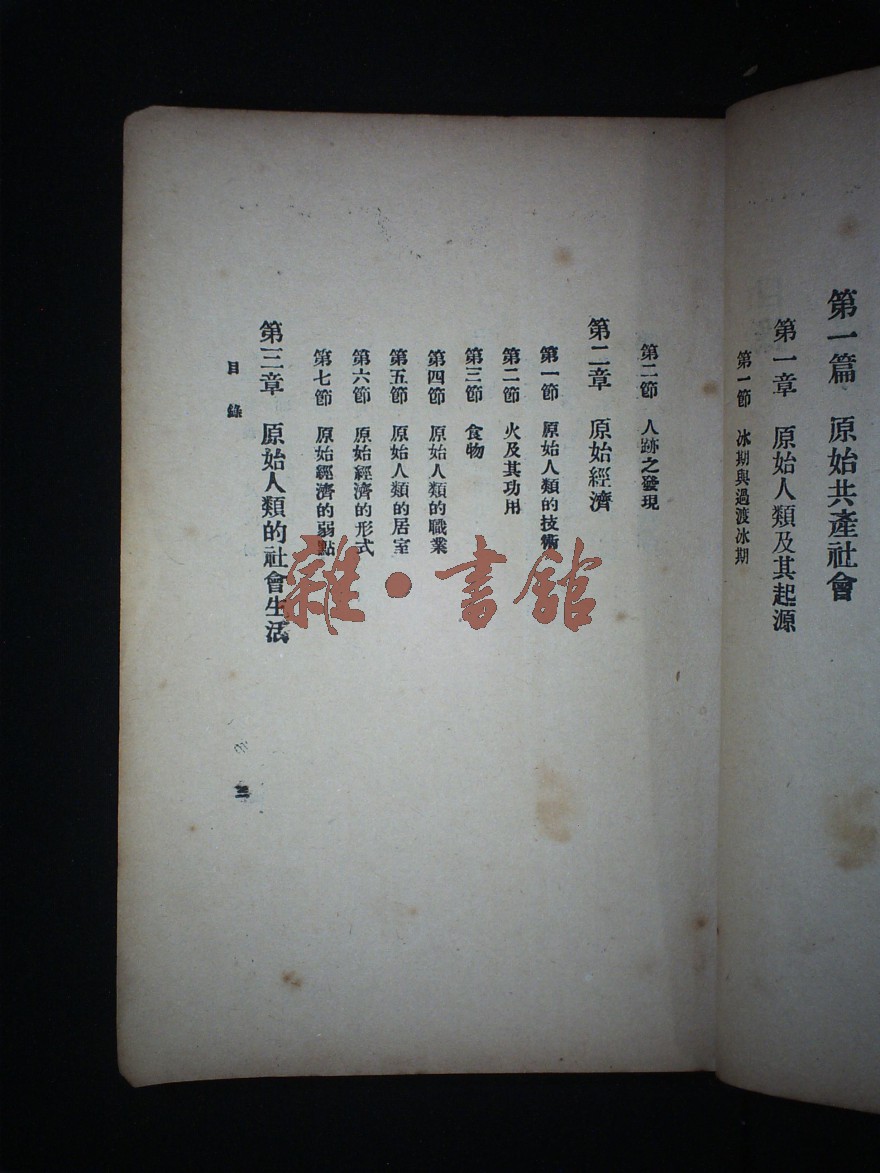 第一篇 原始共產社會
第一章 原始人類及其起源
第一節 冰期與過渡冰期
第二節 人跡之發現
第二章 原始經濟
第一節 原始人類的技術
第二節 火及其功用
第三節 食物
第四節 原始人類的職業
第五節 原始人類的居室
第六節 原始經濟的形式
第七節 原始經濟的弱點
第三章 原始人類的社會生活
目錄
三
雜·書館